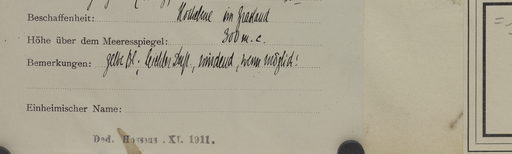 Beschaffenheit: Hochebene im Grasland
Höhe über dem Meeresspiegel: 300 m. c.
Bemerkungen: gelbe Bl.; leichter Duft, windend, wenn möglich!
Einheimischer Name:
Ded. XI. 1911.